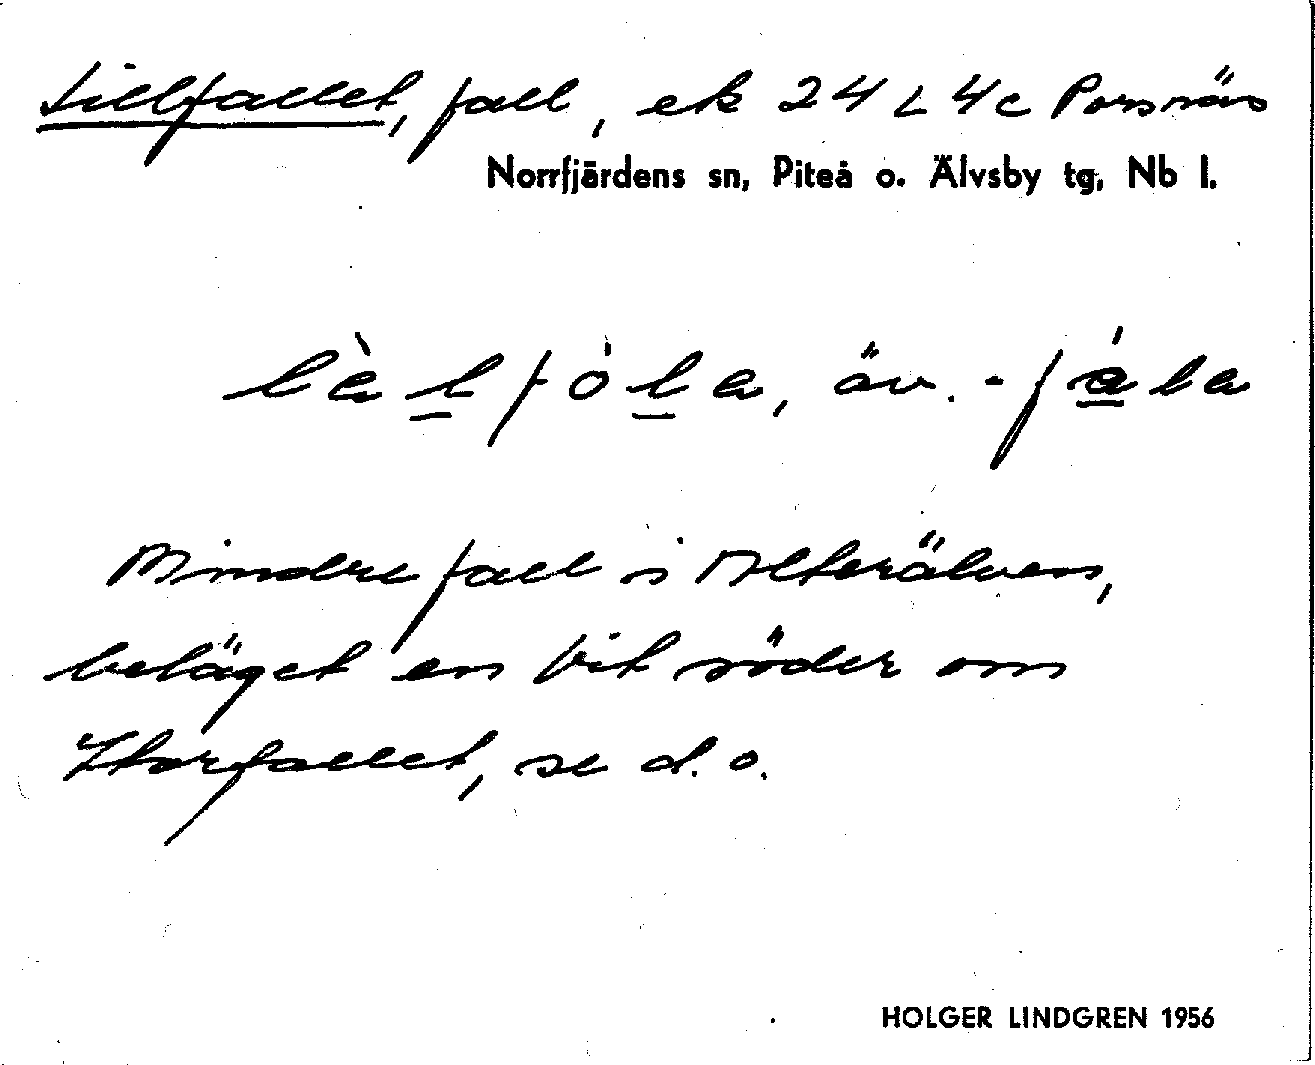 Lillfallet, fall, ek 24 L 4c Porsnäs
Norrfjärdens sn, Piteå o. Älvsby tg, Nb l.
làlfóla, äv. -fála
Mindre fall i Alterälven,
beläget en bit söder om
Storfallet, se d.o.
HOLGER LINDGREN 1956